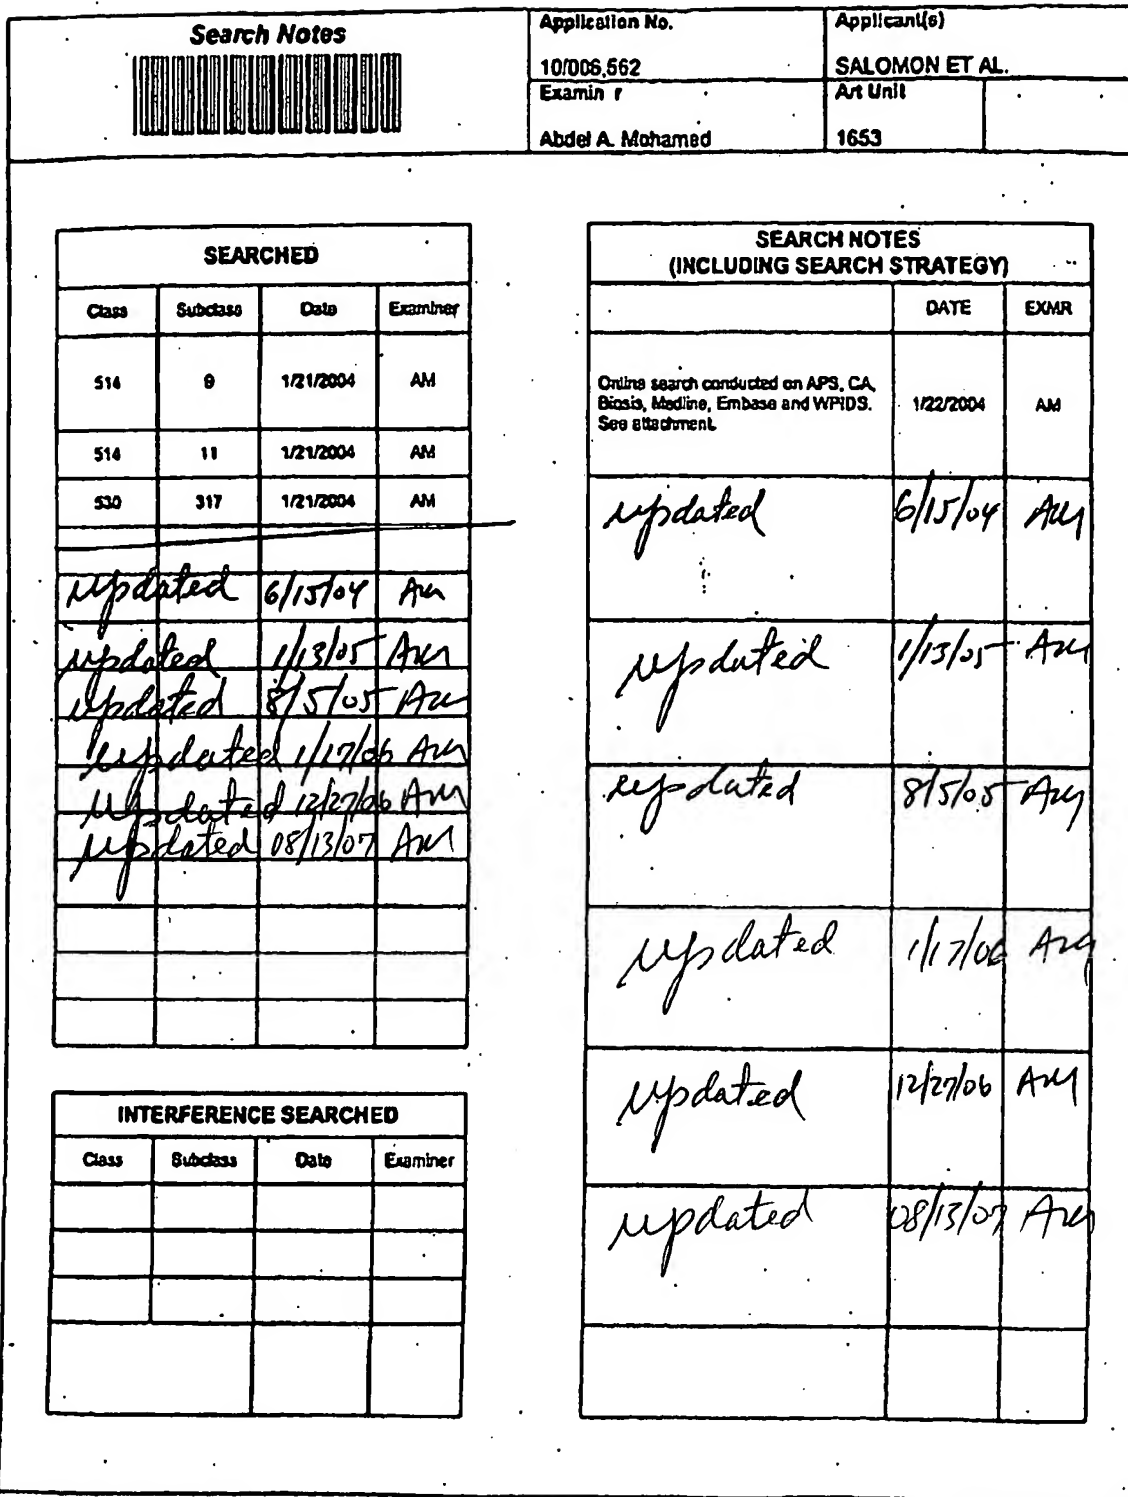 Search Notes
Application No.
10/006,562
Applicant(s)
SALOMON ET AL.
Examin r
Abdel A. Mohamed
Art Unit
1653
SEARCHED
Class Subclass Date Examiner
514 9 1/21/2004 AM
514 11 1/21/2004 AM
530 317 1/21/2004 AM
updated 6/15/04 AM
updated 1/13/05 AM
updated 8/5/05 AM
updated 1/17/06 AM
updated 12/27/06 AM
updated 08/13/07 AM
INTERFERENCE SEARCHED
Class Subclass Date Examiner
SEARCH NOTES
(INCLUDING SEARCH STRATEGY)
DATE EXMR
Online search conducted on APS, CA,
Biosis, Medline, Embase and WPIDS.
See attachment.
1/22/2004 AM
updated 6/15/04 AM
updated 1/13/05 AM
updated 8/5/05 AM
updated 1/17/06 AM
updated 12/27/06 AM
updated 08/13/07 AM